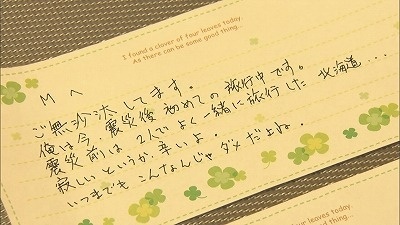 I found a clover of four leaves today.
As there can be some good thing...
M へ
ご無沙汰してます。
俺は今、震災後初めての旅行中です。
震災前は2人でよく一緒に旅行した北海道...
寂しいというか、辛いよ。
いつまでもこんなんじゃダメだよね。
four leaves today.
good thing...